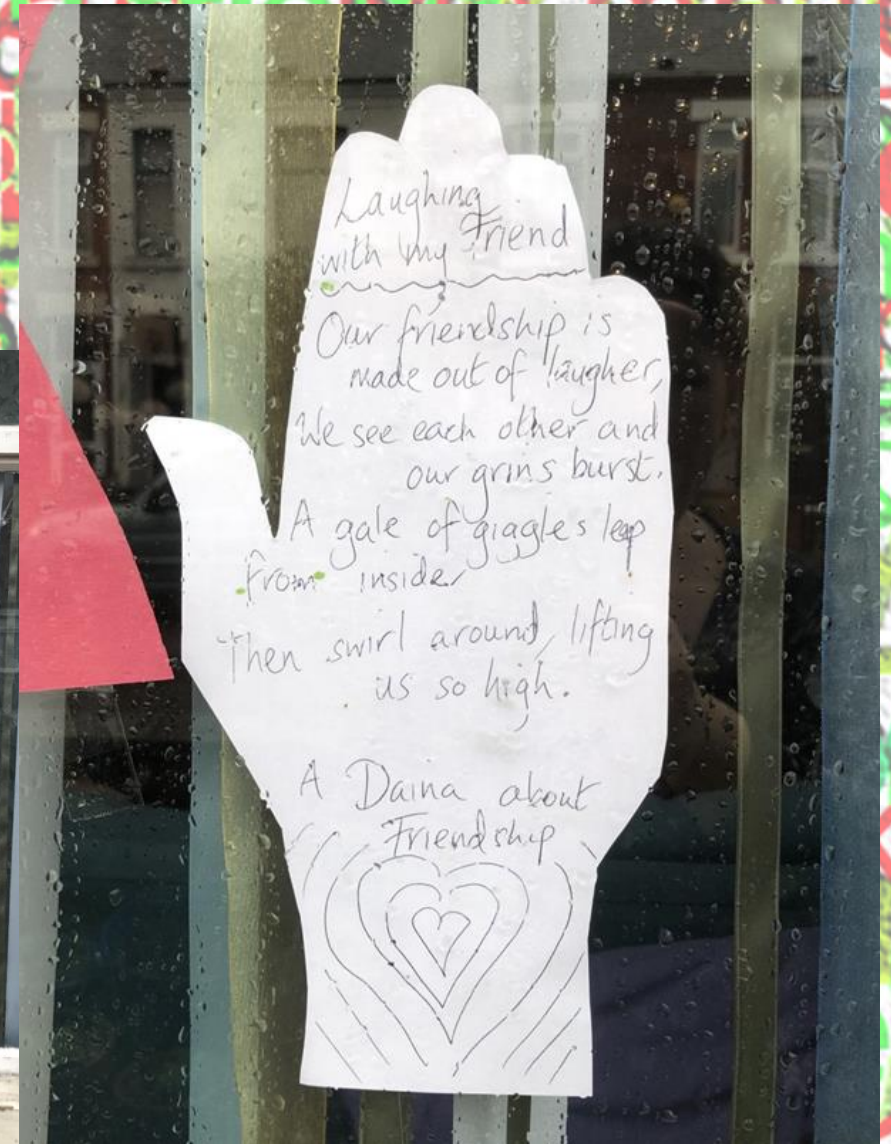 Laughing
with my Friend
Our friendship is
made out of laugher,
We see each other and
our grins burst.
A gale of giggles leap
from inside,
Then swirl around, lifting
us so high.
A Daina about
Friendship